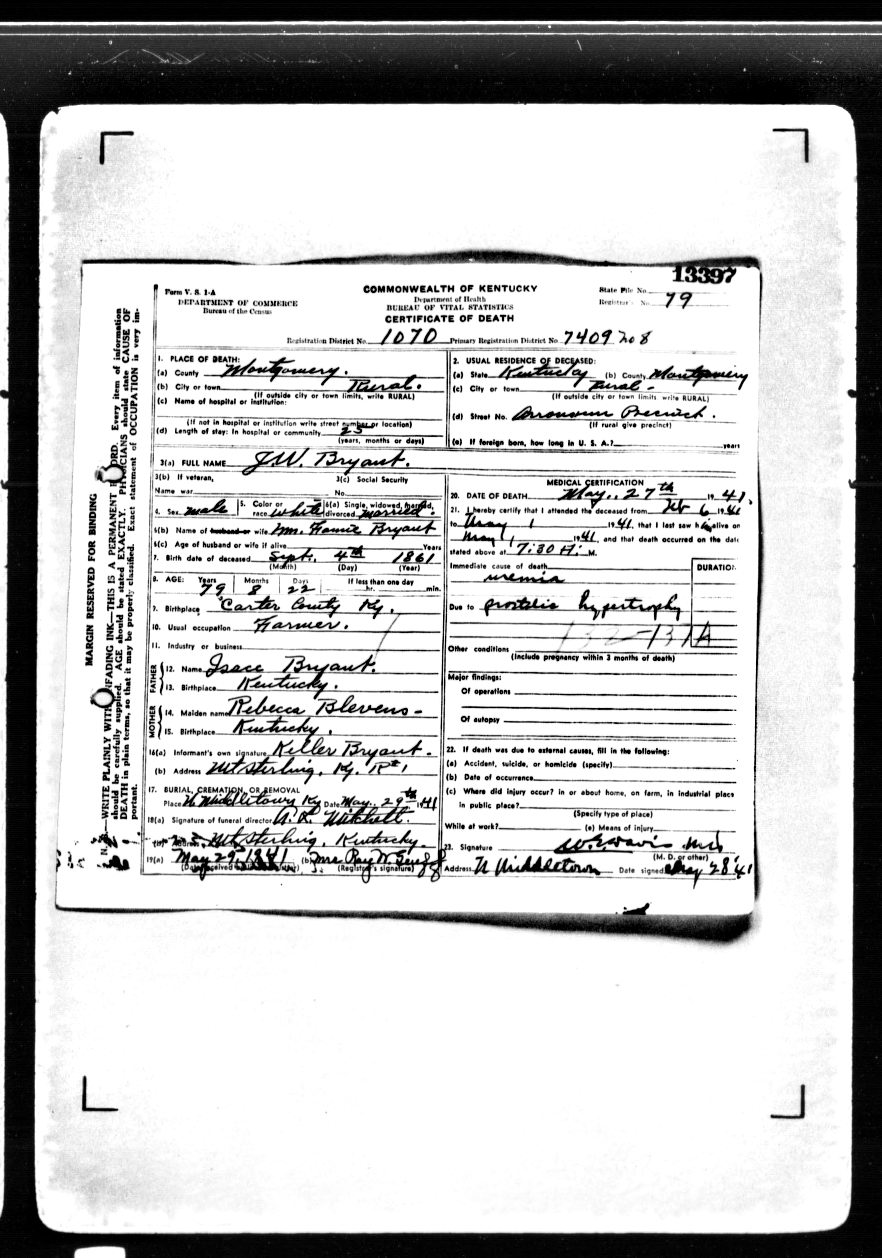 13397
Form V. S. 1-A
DEPARTMENT OF COMMERCE
Bureau of the Census
COMMONWEALTH OF KENTUCKY
Department of Health
BUREAU OF VITAL STATISTICS
CERTIFICATE OF DEATH
State File No.
Registrar's No. 79
Registration District No. 1070 Primary Registration District No. 7409
MARGIN RESERVED FOR BINDING
1. PLACE OF DEATH:
(a) County Montgomery.
(b) City or town Rural.
(If outside city or town limits, write RURAL)
(c) Name of hospital or institution:
(If not in hospital or institution write street number or location)
(d) Length of stay: In hospital or community 25
(years, months or days)
2. USUAL RESIDENCE OF DECEASED:
(a) State Kentucky (b) County Montgomery
(c) City or town Rural -
(If outside city or town limits write RURAL)
(d) Street No. Precinct.
(If rural give precinct)
(e) If foreign born, how long in U. S. A.? years
3(a) FULL NAME J.W. Bryant.
3(b) If veteran,
Name war
3(c) Social Security
No.
4. Sex male 5. Color or race white 6(a) Single, widowed, married, divorced married.
6(b) Name of husband or wife Bryant
6(c) Age of husband or wife if alive Years
7. Birth date of deceased Sept. 4th 1861
(Month) (Day) (Year)
8. AGE: Years Months Days If less than one day
79 8 22 hr. min.
9. Birthplace Carter County Ky.
10. Usual occupation Farmer.
11. Industry or business
FATHER
12. Name Isacc Bryant.
13. Birthplace Kentucky.
MOTHER
14. Maiden name Rebecca Blevens -
15. Birthplace Kentucky.
16(a) Informant's own signature Keller Bryant -
(b) Address Mt Sterling, Ky. R#1
17. BURIAL, CREMATION, OR REMOVAL
Place N. Middletown Ky Date May., 29th 1941
18(a) Signature of funeral director Mitchell.
(b) Address Mt Sterling, Kentucky.
19(a) May 29, 1941 (b) Mrs Ray W.
(Date received) (Registrar's signature)
MEDICAL CERTIFICATION
20. DATE OF DEATH May., 27th 1941.
21. I hereby certify that I attended the deceased from Feb 6 1941
to May 1 1941, that I last saw him alive on
May 1, 1941, and that death occurred on the date
stated above at 7:30 M.
Immediate cause of death DURATION
uremia
Due to prostatic hypertrophy
Other conditions
(Include pregnancy within 3 months of death)
132-137A
Major findings:
Of operations
Of autopsy
22. If death was due to external causes, fill in the following:
(a) Accident, suicide, or homicide (specify)
(b) Date of occurrence
(c) Where did injury occur? in or about home, on farm, in industrial place
in public place?
(Specify type of place)
While at work? (e) Means of injury
23. Signature Davis MD
(M. D. or other)
Address N Middletown Date signed May 28 '41